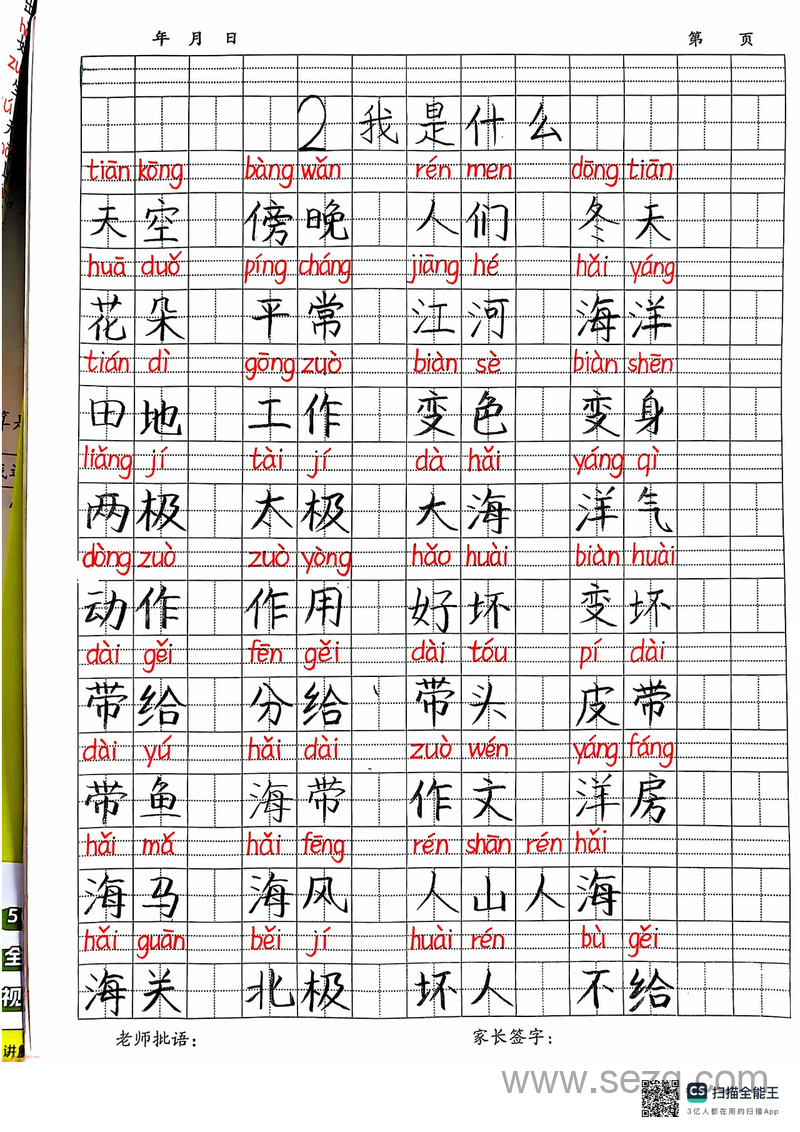 年 月 日 第 页
2 我是什么
tiān kōng bàng wǎn rén men dōng tiān
天空 傍晚 人们 冬天
huā duǒ píng cháng jiāng hé hǎi yáng
花朵 平常 江河 海洋
tián dì gōng zuò biàn sè biàn shēn
田地 工作 变色 变身
liǎng jí tài jí dà hǎi yáng qì
两极 太极 大海 洋气
dòng zuò zuò yòng hǎo huài biàn huài
动作 作用 好坏 变坏
dài gěi fēn gěi dài tóu pí dài
带给 分给 带头 皮带
dài yú hǎi dài zuò wén yáng fáng
带鱼 海带 作文 洋房
hǎi mǎ hǎi fēng rén shān rén hǎi
海马 海风 人山人海
hǎi guān běi jí huài rén bù gěi
海关 北极 坏人 不给
老师批语： 家长签字：
5
全
视
讲解
www.sezg.com
CS 扫描全能王
3亿人都在用的扫描App